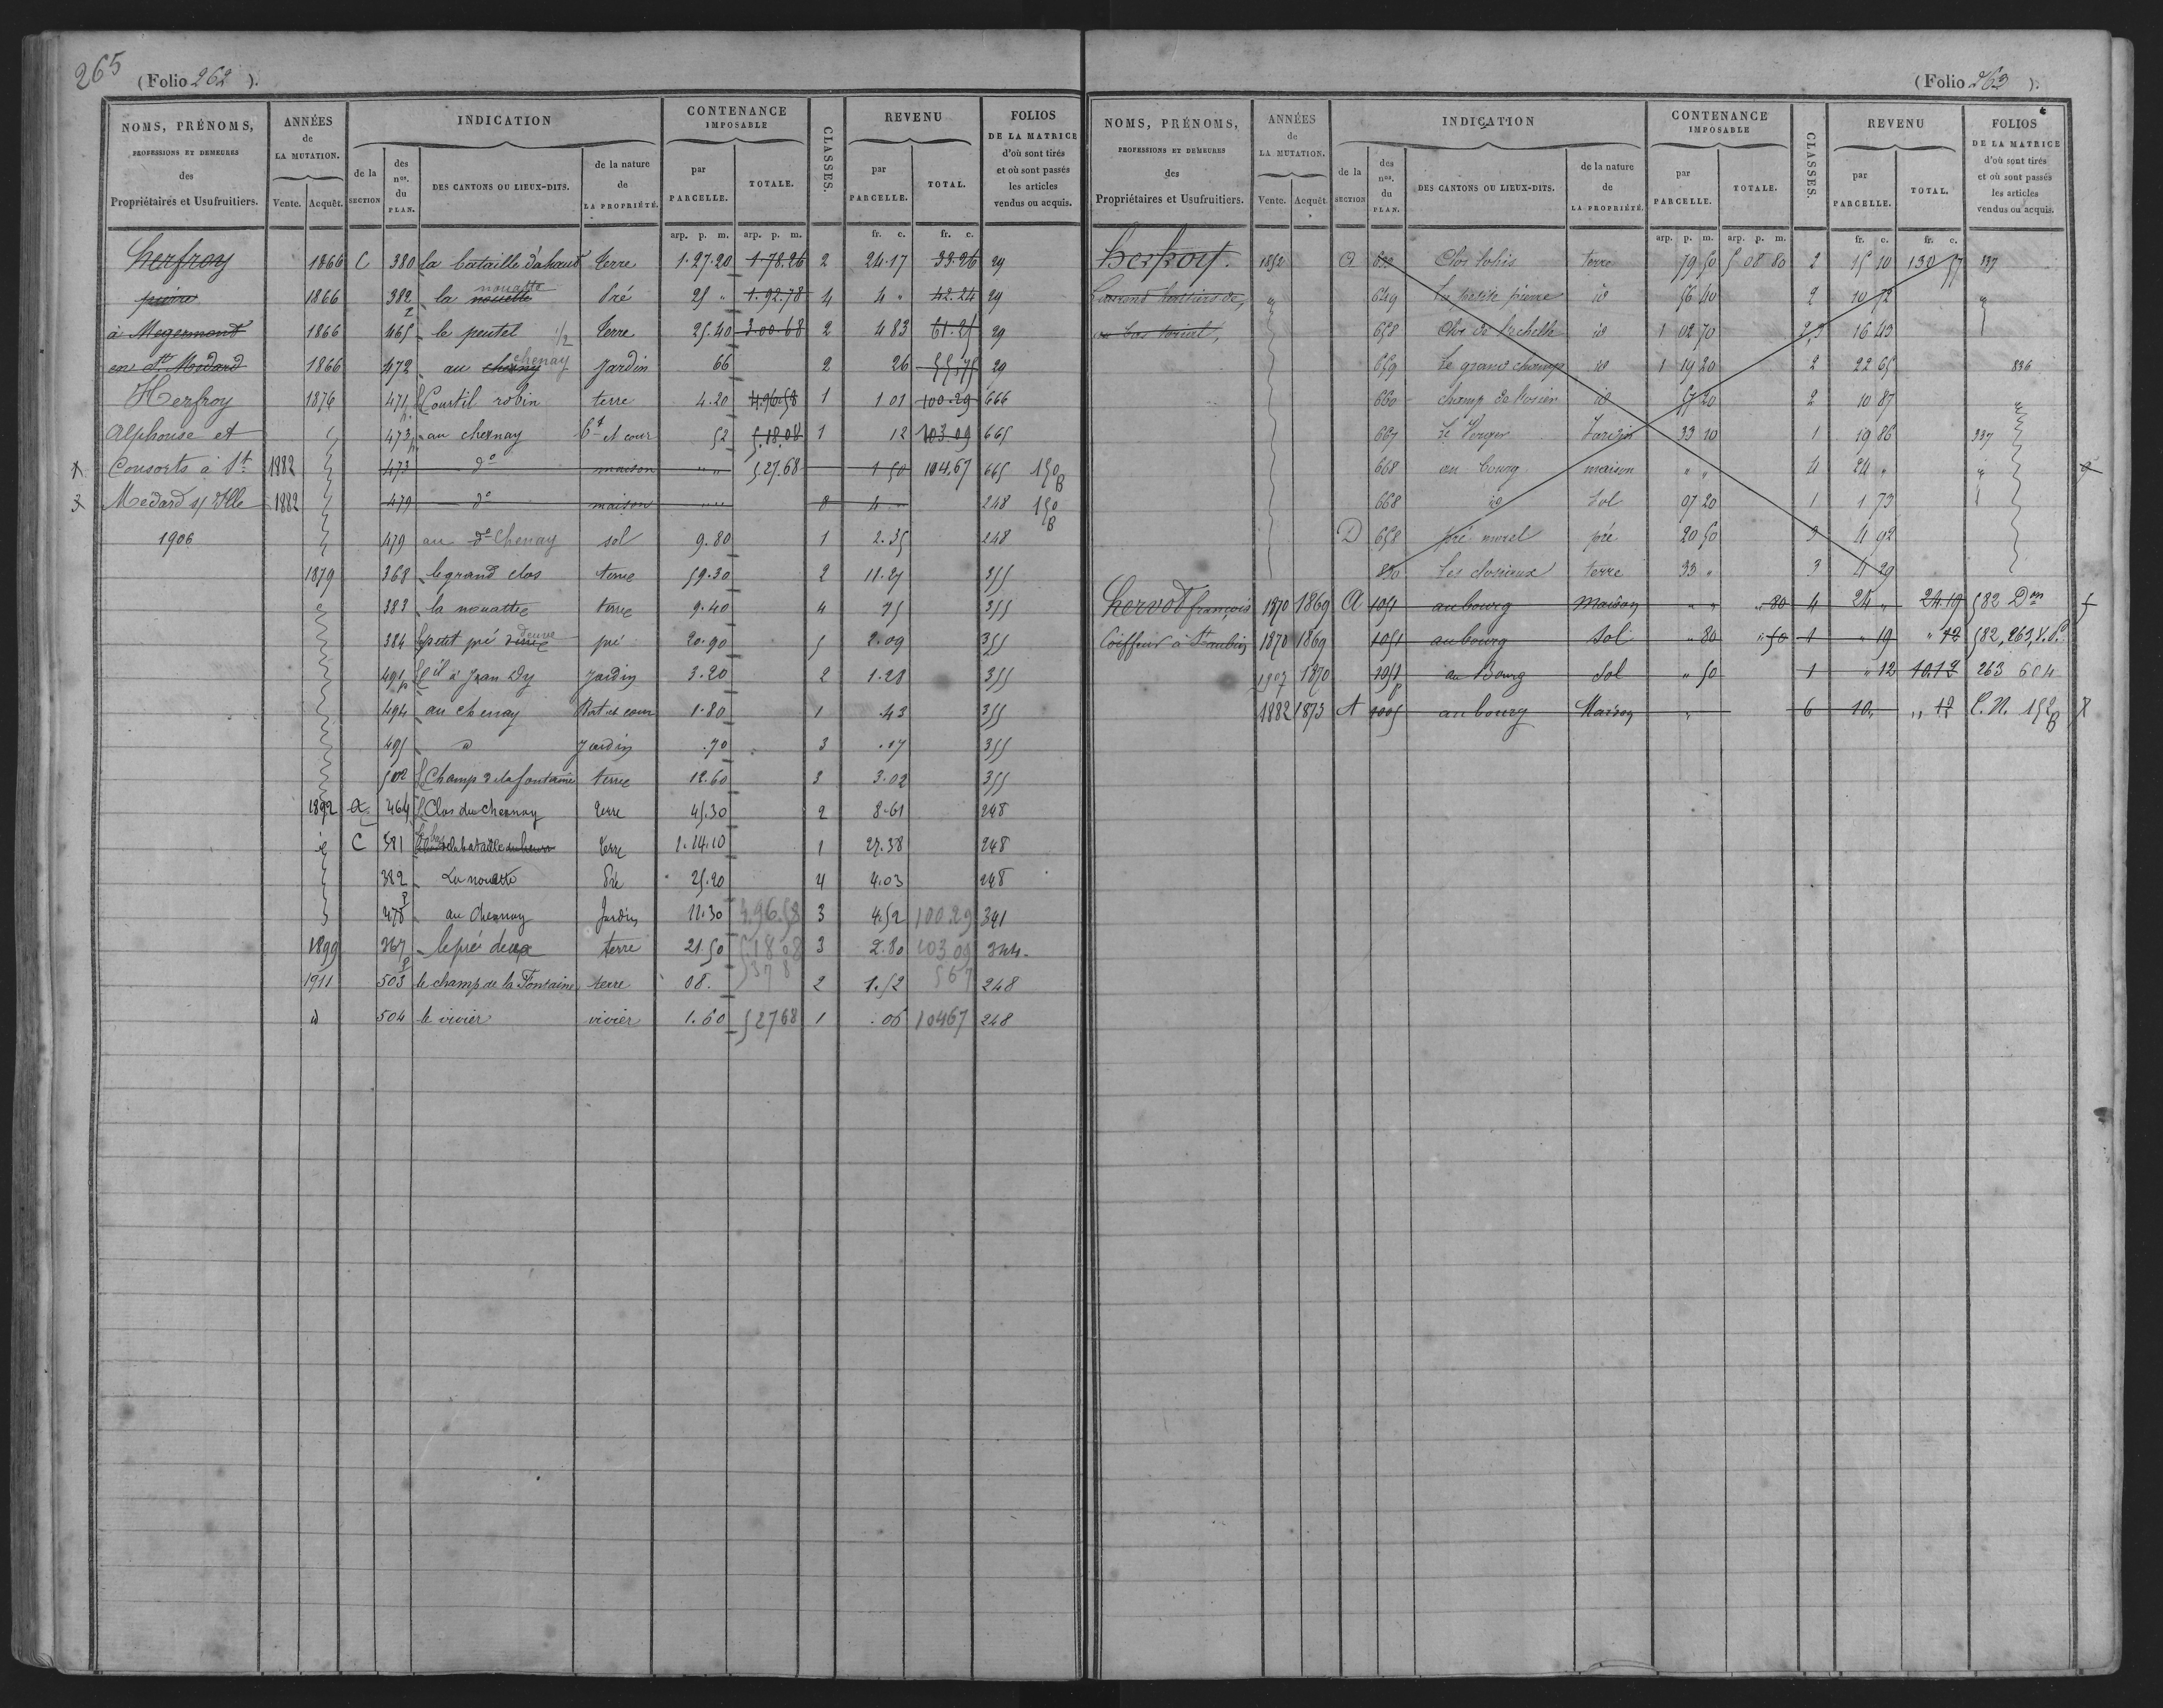 265
(Folio 262 ).
NOMS, PRÉNOMS, PROFESSIONS ET DEMEURES des Propriétaires et Usufruitiers.
ANNÉES de LA MUTATION. Vente. Acquêt.
INDICATION de la SECTION des nos. du PLAN. DES CANTONS OU LIEUX-DITS. de la nature de LA PROPRIÉTÉ.
CONTENANCE IMPOSABLE par PARCELLE. TOTALE.
CLASSES.
REVENU par PARCELLE. TOTAL.
FOLIOS DE LA MATRICE d'où sont tirés et où sont passés les articles vendus ou acquis.
arp. p. m. arp. p. m. fr. c. fr. c.
herfroy 1866 C 380 la bataille d'ahaud terre 1.27.20 1.78.26 2 24.17 33.26 29
pierre 1866 382 la nouette nouatte Pré 25 " 1.92.78 4 4 " 42.24 29
à Megermont 1866 465 le peutel 1/2 terre 25.40 3.00.68 2 4 83 61.25 29
en St Médard 1866 472 au chenay jardin 66 2 26 55.75 29
Herfroy 1876 471 Courtil robin terre 4.20 4.96.58 1 1 01 100.29 666
Alphonse et 473 au chesnay Bt et cour 52 5.18.08 1 12 103.09 665
Consorts à St 1882 473 do maison " " 5.27.68 1 50 104.67 665 150 B
Médard s/ Ille 1882 479 do maison " " 8 4 " 248 150 B
1906 479 au do Chenay sol 9.80 1 2.35 248
1879 368 le grand clos terre 59.30 2 11.27 355
383 la nouattee terre 9.40 4 75 355
384 le petit pré deuve pré 20.90 5 2.09 355
491 p Ctil à Jean Dy jardin 3.20 2 1.28 355
494 au chenay Bat et cour 1.80 1 .43 355
495 d jardin .70 3 .17 355
502 Champ de la fontaine terre 12.60 3 3.02 355
1892 a 464 Clos du Chesnay terre 45.30 2 8.61 248
id C 381 la bataille terre 1.14.10 1 27.38 248
382 La nouatte Pré 25.20 4 4.03 248
478 au Chesnay Jardin 11.30 4.96.58 3 4.52 100.29 341
1899 367 le pré deux terre 21.50 5.18.08 3 2.80 103.09 344
1911 503 le champ de la Fontaine terre 08. 2 1.52 248
id 504 le vivier vivier 1.60 52768 1 .06 10467 248
(Folio 263 ).
NOMS, PRÉNOMS, PROFESSIONS ET DEMEURES des Propriétaires et Usufruitiers.
ANNÉES de LA MUTATION. Vente. Acquêt.
INDICATION de la SECTION des nos. du PLAN. DES CANTONS OU LIEUX-DITS. de la nature de LA PROPRIÉTÉ.
CONTENANCE IMPOSABLE par PARCELLE. TOTALE.
CLASSES.
REVENU par PARCELLE. TOTAL.
FOLIOS DE LA MATRICE d'où sont tirés et où sont passés les articles vendus ou acquis.
arp. p. m. arp. p. m. fr. c. fr. c.
herfroy. 1852 a Clos terre 79 50 5 08 80 2 15 10 130 57 337
héritiers de, " 649 La petite pierre id 56 40 2 10 72 "
658 Clos de l'echelle id 1 02 70 2,3 16 43
659 Le grand champ id 1 19 20 2 22 65 836
660 champ de l'osier id 57 20 2 10 87
667 Le Verger Jardin 33 10 1 19 86 337
668 au bourg maison " " 4 24 " "
668 id sol 07 20 1 1 73
D 658 pré morel pré 20 50 3 4 92
830 Les closieux terre 33 " 3 4 29
hervot françois 1870 1869 a 1051 au bourg Maison " " " 80 4 24 " 24.19 582 Don
Coiffeur à St aubin 1870 1869 1051 au bourg Sol " 80 " 50 1 " 19 " 12 582, 263,
1907 1870 1051 p au Bourg Sol " 50 1 " 12 10.12 263 604
1882 1873 A 1005 au bourg Maison " 6 10 " " 12 C.N. 152 B